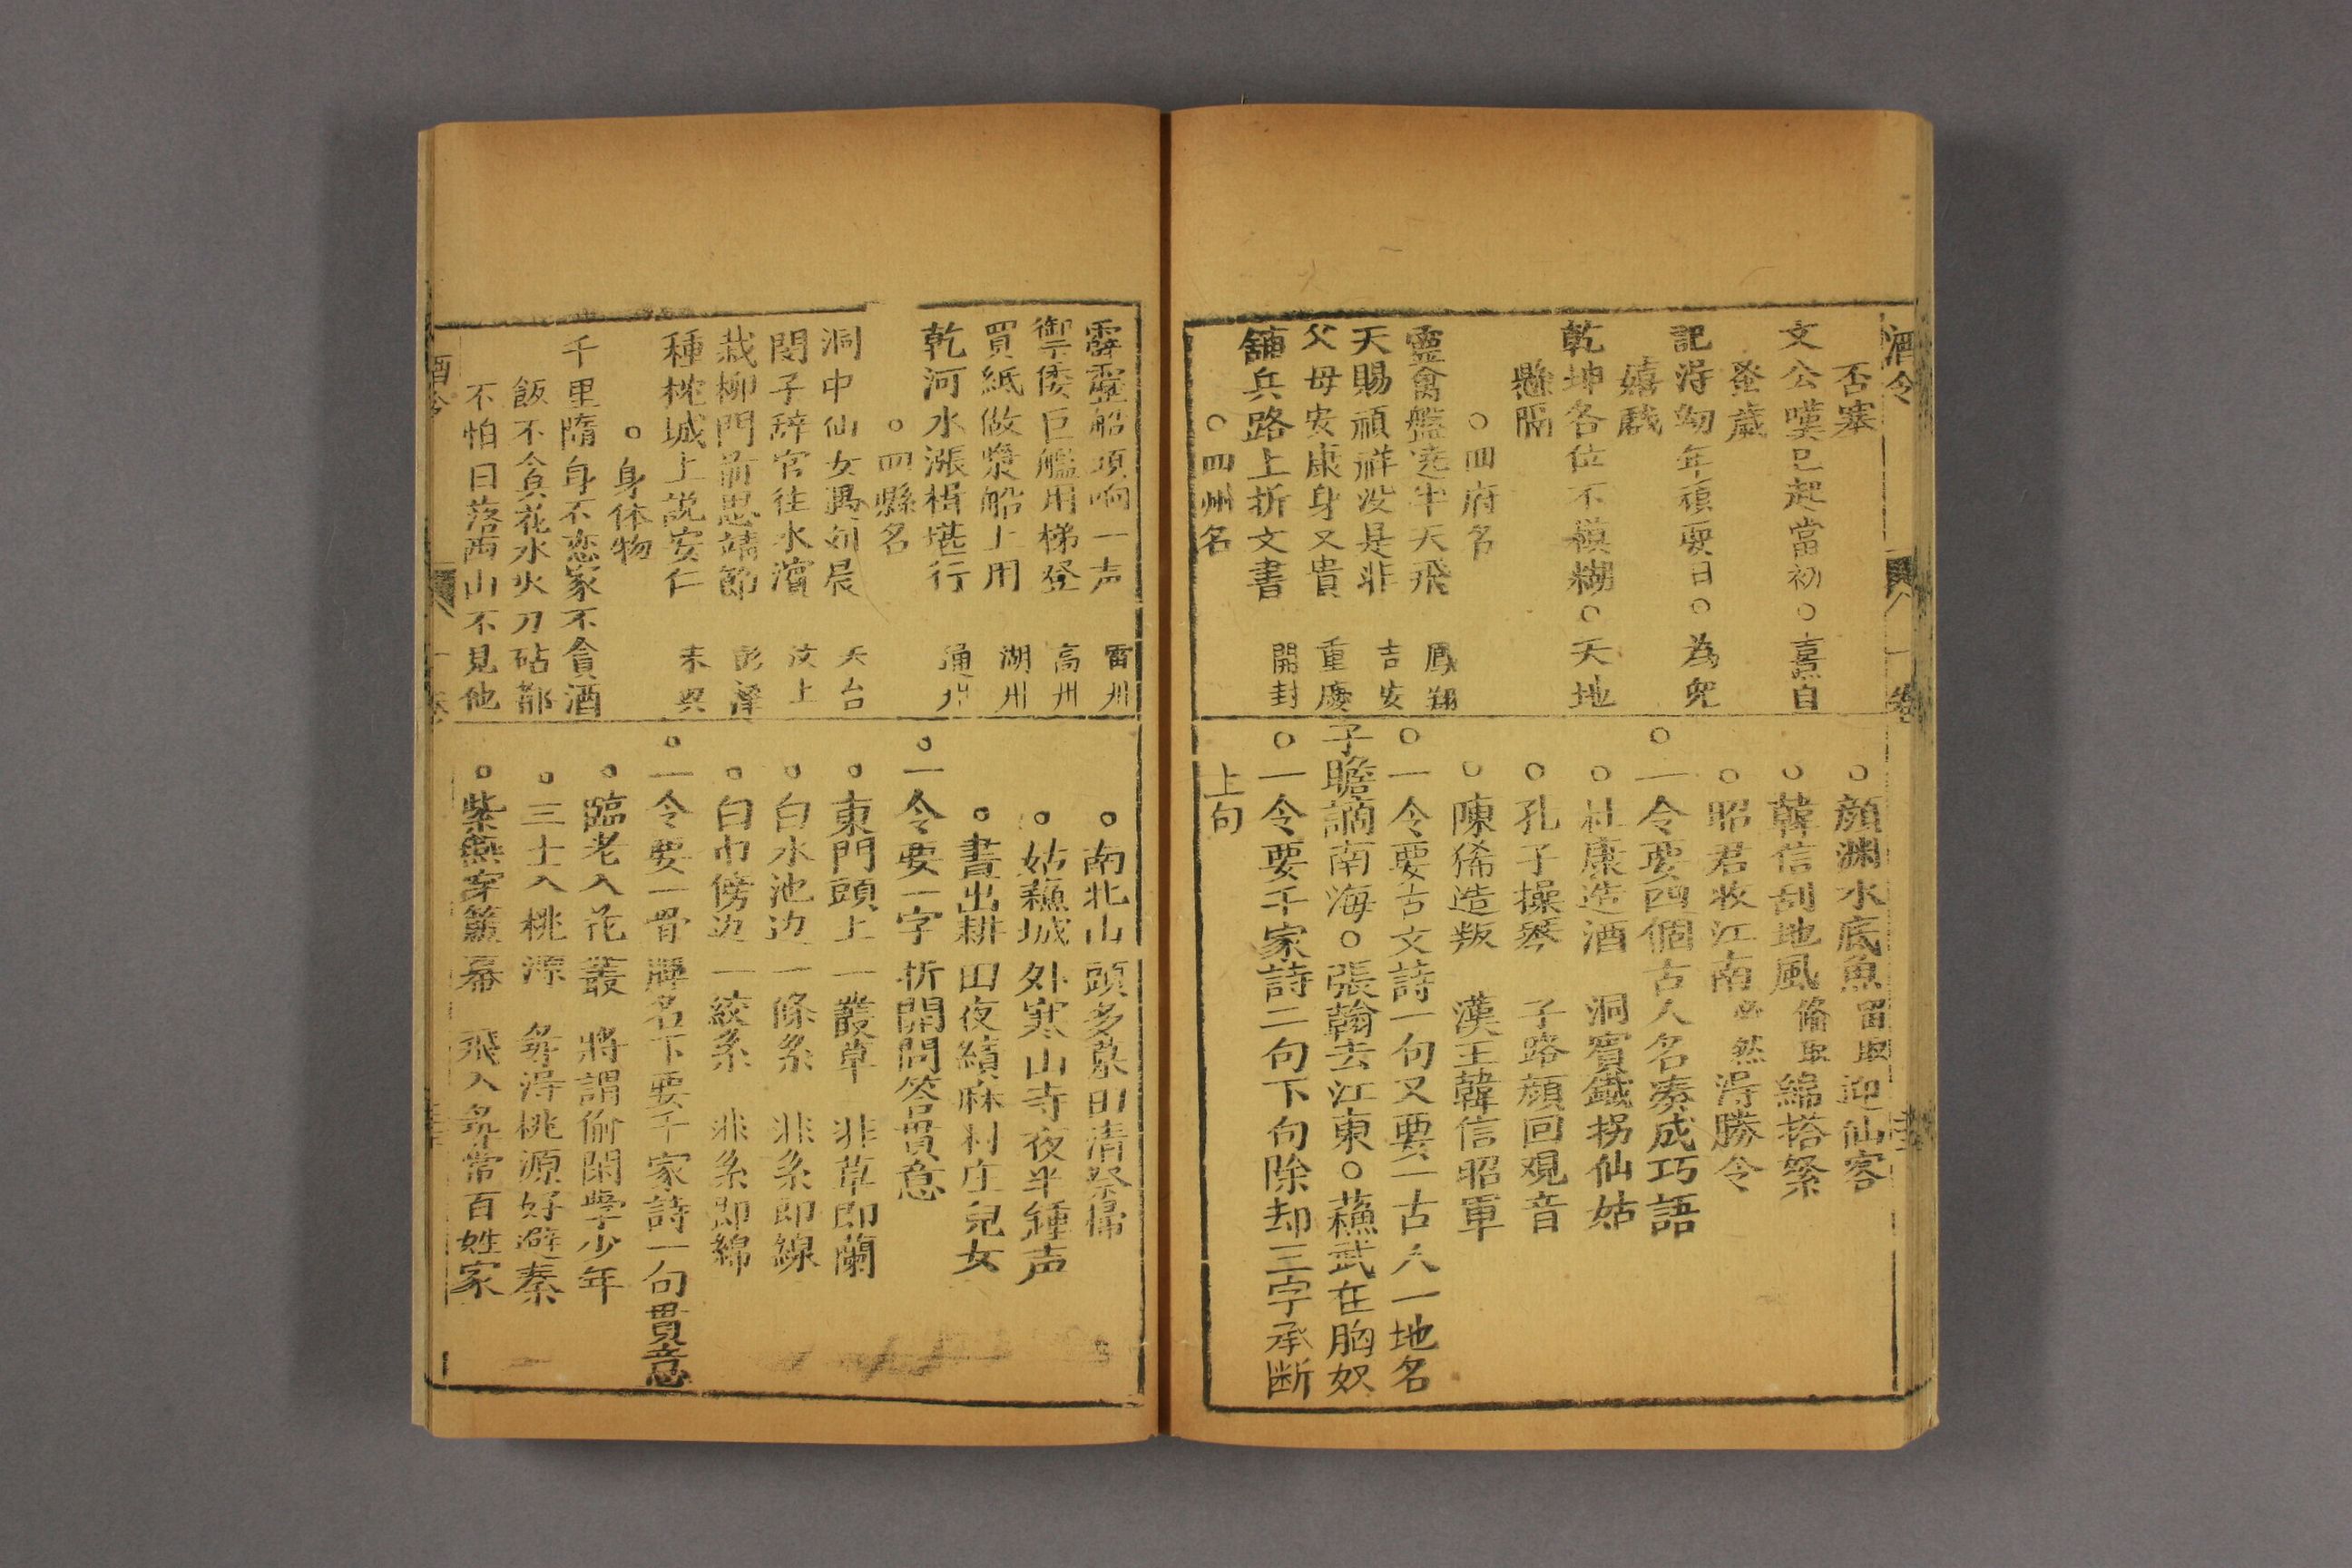 酒令
卷
否塞
文公嘆已起當初○喜自
蚤歲
記得幼年頑耍日○為兒
嬉戲
乾坤各位不模糊○天地
懸隔
○四府名
靈禽盤遶半天飛 鳳翔
天賜禎祥没是非 吉安
父母安康身又貴 重慶
舖兵路上折文書 開封
○四州名
○顔渊水底魚留取迎仙客
○韓信刮地風俻取綿搭絮
○昭君收江南必然得勝令
○一令要四個古人名凑成巧語
○杜康造酒 洞賔鐵拐仙姑
○孔子操琴 子路顔回观音
○陳豨造叛 漢王韓信昭軍
○一令要古文詩一句又要二古人一地名
子瞻謫南海○張翰去江東○蘓武在胸奴
○一令要千家詩二句下句除却三字承断
上句
霹靂船頭响一声 雷州
禦倭巨艦用梯登 高州
買紙做漿船上用 湖州
乾河水漲楫堪行 通州
○四縣名
洞中仙女遇刘晨 天台
閔子辭官往水濱 汶上
栽柳門前思靖節 彭澤
種桃城上説安仁
○身体物
千里隋身不恋家不貪酒
飯不貪花水火刀砧都
不怕日落西山不見他
○南北山頭多墓田清祭掃
○姑蘓城外寒山寺夜半鍾声
○晝出耕田夜績麻村庄兒女
○一令要一字折開問答貫意
○東門頭上一叢草 非草即蘭
○白水池边一條糸 非糸即線
○白巾傍边一絞糸 非糸即綿
○一令要一骨牌名下要千家詩一句貫意
○臨老入花叢 將謂偷閑學少年
○三士入桃源 㝷得桃源好避秦
○紫燕穿簾幕 飛入㝷常百姓家
酒令